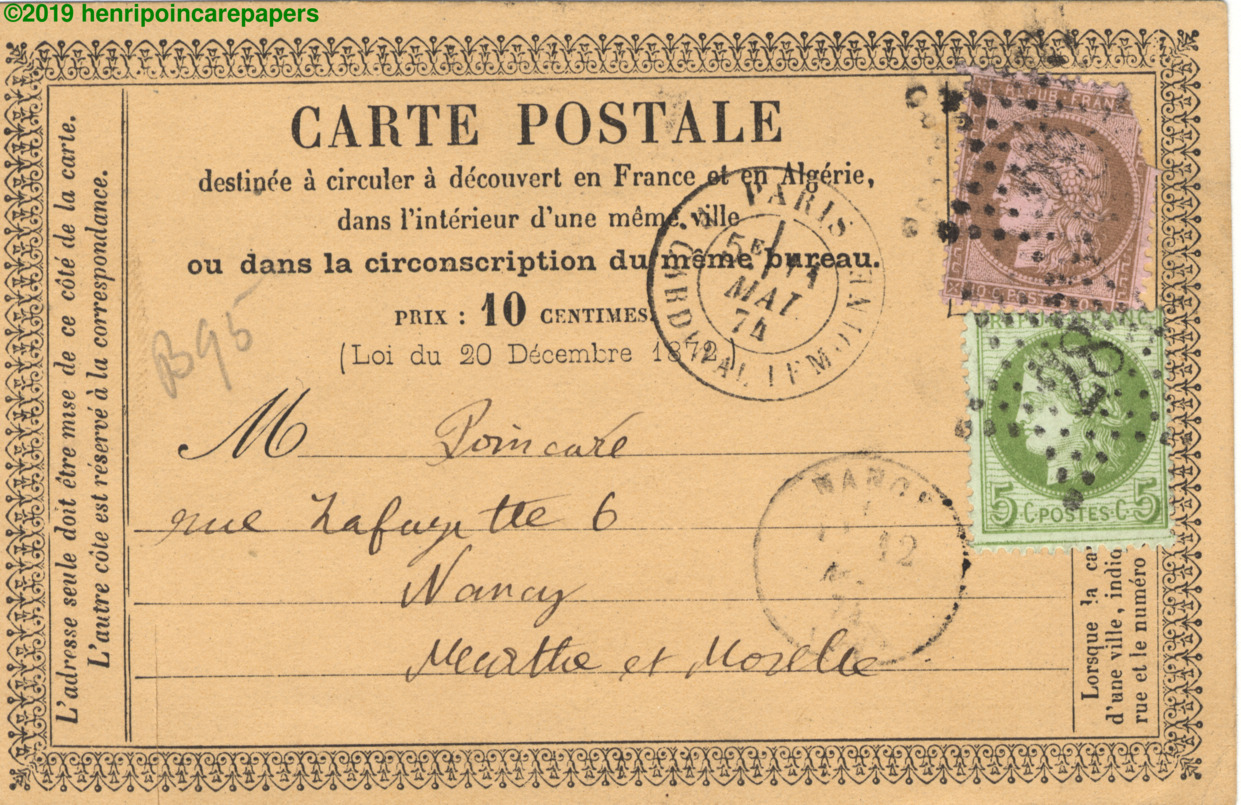 ©2019 henripoincarepapers
CARTE POSTALE
destinée à circuler à découvert en France et en Algérie,
dans l'intérieur d'une même ville
ou dans la circonscription du même bureau.
PRIX : 10 CENTIMES.
(Loi du 20 Décembre 1872)
L'adresse seule doit être mise de ce côté de la carte.
L'autre côté est réservé à la correspondance.
B95
PARIS
5E
11
MAI
74
REPUB. FRANC
10 C. POSTES 10
5 C POSTES C 5
M Poincaré
rue Lafayette 6
Nancy
Meurthe et Moselle
NANCY
12
74
Lorsque la ca
d'une ville, indiq
rue et le numéro